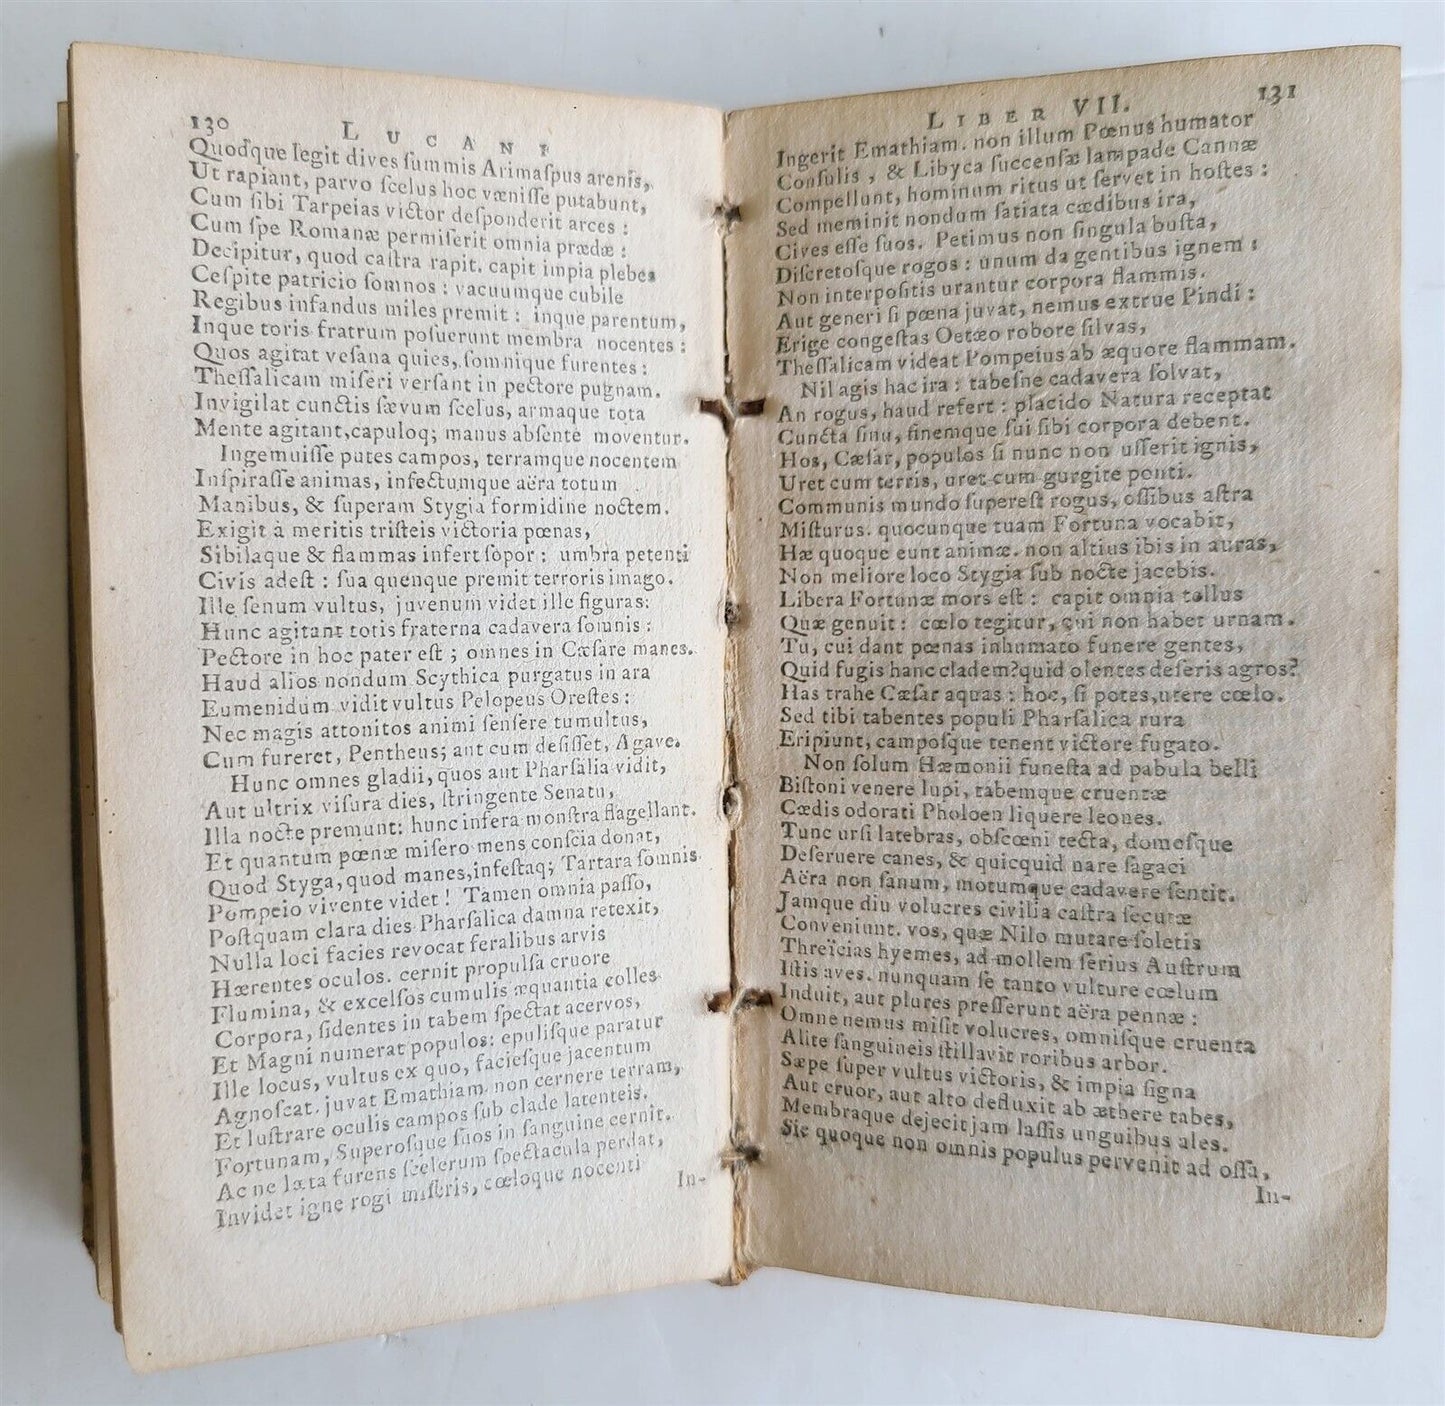 130 LUCANI
Quodque legit dives ſummis Arimaſpus arenis,
Ut rapiant, parvo ſcelus hoc væniſſe putabunt,
Cum ſibi Tarpeias victor deſponderit arces :
Cum ſpe Romanæ permiſerit omnia prædæ :
Decipitur, quod caſtra rapit. capit impia plebes
Ceſpite patricio ſomnos : vacuumque cubile
Regibus infandus miles premit : inque parentum,
Inque toris fratrum poſuerunt membra nocentes :
Quos agitat veſana quies, ſomnique furentes :
Theſſalicam miſeri verſant in pectore pugnam.
Invigilat cunctis ſævum ſcelus, armaque tota
Mente agitant,capuloq; manus abſente moventur.
Ingemuiſſe putes campos, terramque nocentem
Inſpiraſſe animas, infectumque aëra totum
Manibus, & ſuperam Stygia formidine noctem.
Exigit à meritis triſteis victoria pœnas,
Sibilaque & flammas infert ſopor : umbra petenti
Civis adeſt : ſua quenque premit terroris imago.
Ille ſenum vultus, juvenum videt ille figuras:
Hunc agitant totis fraterna cadavera ſomnis :
Pectore in hoc pater eſt ; omnes in Cæſare manes.
Haud alios nondum Scythica purgatus in ara
Eumenidum vidit vultus Pelopeus Oreſtes :
Nec magis attonitos animi ſenſere tumultus,
Cum fureret, Pentheus; aut cum deſiſſet, Agave.
Hunc omnes gladii, quos aut Pharſalia vidit,
Aut ultrix viſura dies, ſtringente Senatu,
Illa nocte premunt: hunc infera monſtra flagellant.
Et quantum pœnæ miſero mens conſcia donat,
Quod Styga, quod manes,infeſtaq; Tartara ſomnis
Pompeio vivente videt ! Tamen omnia paſſo,
Poſtquam clara dies Pharſalica damna retexit,
Nulla loci facies revocat feralibus arvis
Hærentes oculos. cernit propulſa cruore
Flumina, & excelſos cumulis æquantia colles
Corpora, ſidentes in tabem ſpectat acervos,
Et Magni numerat populos: epuliſque paratur
Ille locus, vultus ex quo, facieſque jacentum
Agnoſcat. juvat Emathiam non cernere terram,
Et luſtrare oculis campos ſub clade latenteis.
Fortunam, Superoſque ſuos in ſanguine cernit.
Ac ne læta furens ſcelerum ſpectacula perdat,
Invidet igne rogi miſeris, cœloque nocenti
In-
LIBER VII. 131
Ingerit Emathiam. non illum Pœnus humator
Conſulis, & Libyca ſuccenſæ lampade Cannæ
Compellunt, hominum ritus ut ſervet in hoſtes :
Sed meminit nondum ſatiata cædibus ira,
Cives eſſe ſuos. Petimus non ſingula buſta,
Diſcretoſque rogos : unum da gentibus ignem :
Non interpoſitis urantur corpora flammis.
Aut generi ſi pœna juvat, nemus extrue Pindi :
Erige congeſtas Oetæo robore ſilvas,
Theſſalicam videat Pompeius ab æquore flammam.
Nil agis hac ira : tabeſne cadavera ſolvat,
An rogus, haud refert : placido Natura receptat
Cuncta ſinu, finemque ſui ſibi corpora debent.
Hos, Cæſar, populos ſi nunc non uſſerit ignis,
Uret cum terris, uret cum gurgite ponti.
Communis mundo ſupereſt rogus, oſſibus aſtra
Miſturus. quocunque tuam Fortuna vocabit,
Hæ quoque eunt animæ. non altius ibis in auras,
Non meliore loco Stygia ſub nocte jacebis.
Libera Fortunæ mors eſt : capit omnia tellus
Quæ genuit : cœlo tegitur, qui non habet urnam.
Tu, cui dant pœnas inhumato funere gentes,
Quid fugis hanc cladem?quid olentes deſeris agros?
Has trahe Cæſar aquas : hoc, ſi potes,utere cœlo.
Sed tibi tabentes populi Pharſalica rura
Eripiunt, campoſque tenent victore fugato.
Non ſolum Hæmonii funeſta ad pabula belli
Biſtoni venere lupi, tabemque cruentæ
Cædis odorati Pholoen liquere leones.
Tunc urſi latebras, obſcœni tecta, domoſque
Deſeruere canes, & quicquid nare ſagaci
Aëra non ſanum, motumque cadavere ſentit.
Jamque diu volucres civilia caſtra ſecutæ
Conveniunt. vos, quæ Nilo mutare ſoletis
Threïcias hyemes, ad mollem ſerius Auſtrum
Iſtis aves. nunquam ſe tanto vulture cœlum
Induit, aut plures preſſerunt aëra pennæ :
Omne nemus miſit volucres, omniſque cruenta
Alite ſanguineis ſtillavit roribus arbor.
Sæpe ſuper vultus victoris, & impia ſigna
Aut cruor, aut alto defluxit ab æthere tabes,
Membraque dejecit jam laſſis unguibus ales.
Sic quoque non omnis populus pervenit ad oſſa,
In-